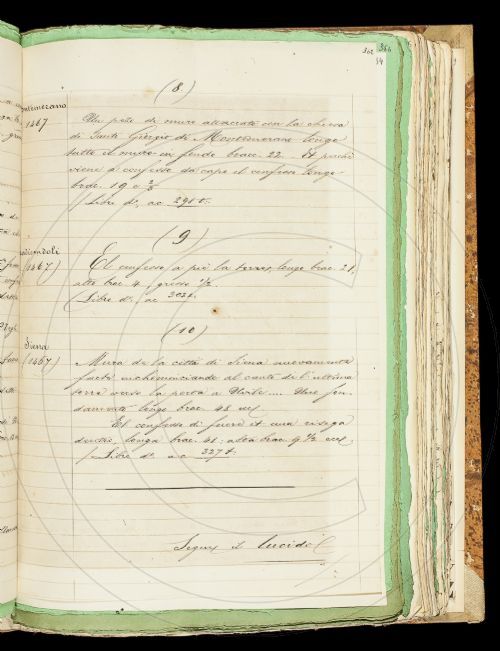 362 366
54
(8)
Montemerano
1467
Un pezo di muro atacato con la chiesa
di Santo Giorgio di Montemerano longo
tutto il muro in fondo brac. 22 . Et
viene a confesso da capo el confesso longo
brac. 19 e 2/3
(Libro d°, ac. 291 t.
(9)
(1467)
El confesso a piè la torre, longo brac. 21,
alto brac. 4, grosso 1/2.
(Libro d°, ac 302 t.
(10)
Siena
(1467)
Mura de la città di Siena nuovamente
fatte inchominciando al canto de l'ultima
torre verso la porta a Uvile .... Uno fon-
damento longo brac. 48
Et confesso di fuore et una risega
dentro, longa brac. 41: alta brac. 9 1/2
(Libro d° ac 327 t.
Segue il lucido (